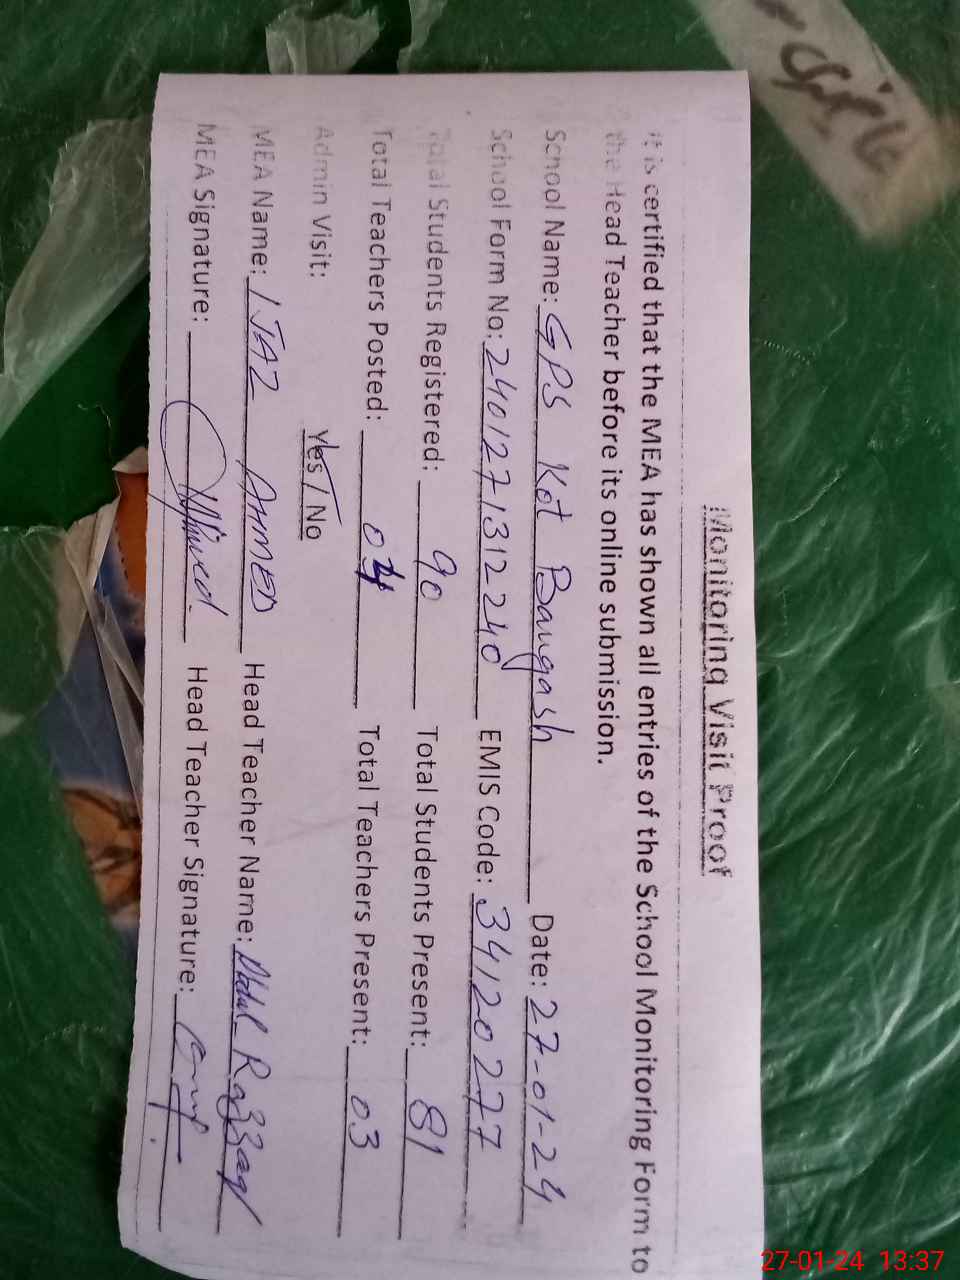 Monitoring Visit Proof
It is certified that the MEA has shown all entries of the School Monitoring Form to
the Head Teacher before its online submission.
School Name: GPS Kot Bangash Date: 27-01-24
School Form No: 2401271312240 EMIS Code: 34120277
Total Students Registered: 90 Total Students Present: 81
Total Teachers Posted: 04 Total Teachers Present: 03
Admin Visit: Yes / No
MEA Name: IJAZ AHMED Head Teacher Name: Abdul Razzaq
MEA Signature: Ahmed Head Teacher Signature:
27-01-24 13:37